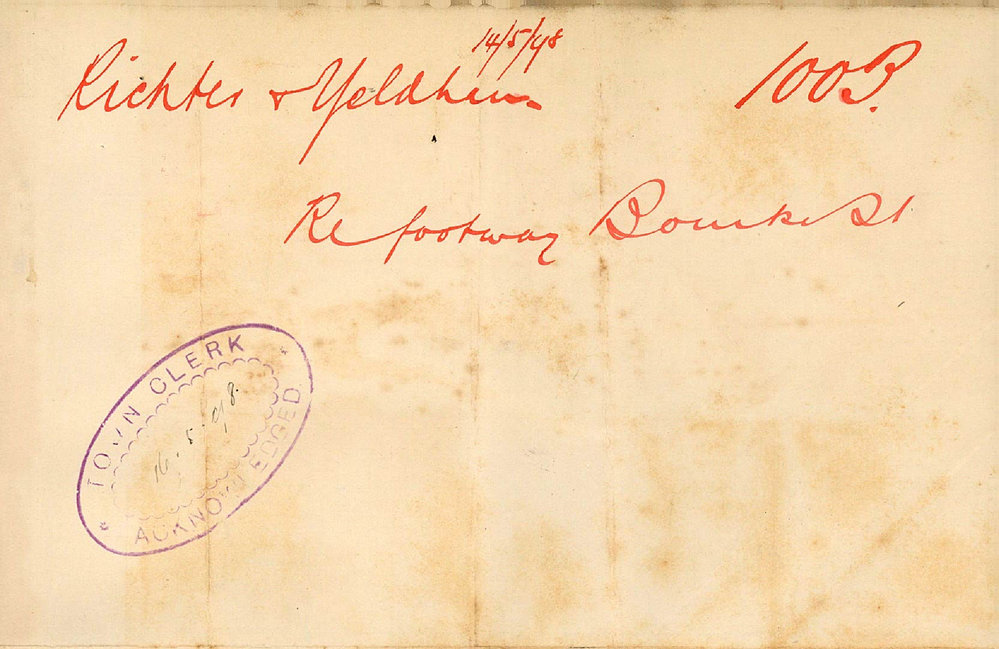 14/5/98
Richter & Yeldham 1003.
Re footway Bourke St
TOWN CLERK
16.5.98.
ACKNOWLEDGED